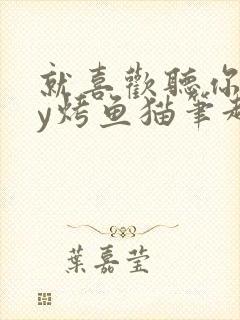 就喜歡聽你
y烤鱼猫笔趣
葉嘉莹